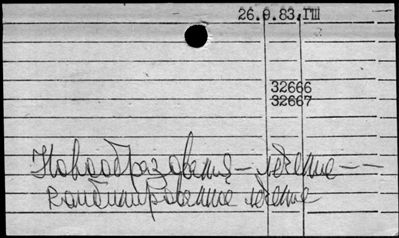 26.9.83, ГШ
32666
32667
Новообразования - лечение --
Комбинированное лечение